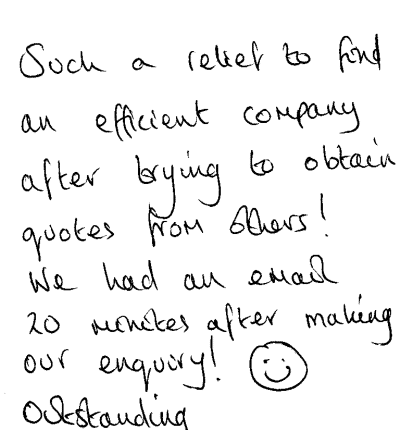 Such a relief to find
an efficient company
after trying to obtain
quotes from others!
We had an email
20 minutes after making
our enquiry! ☺
Outstanding